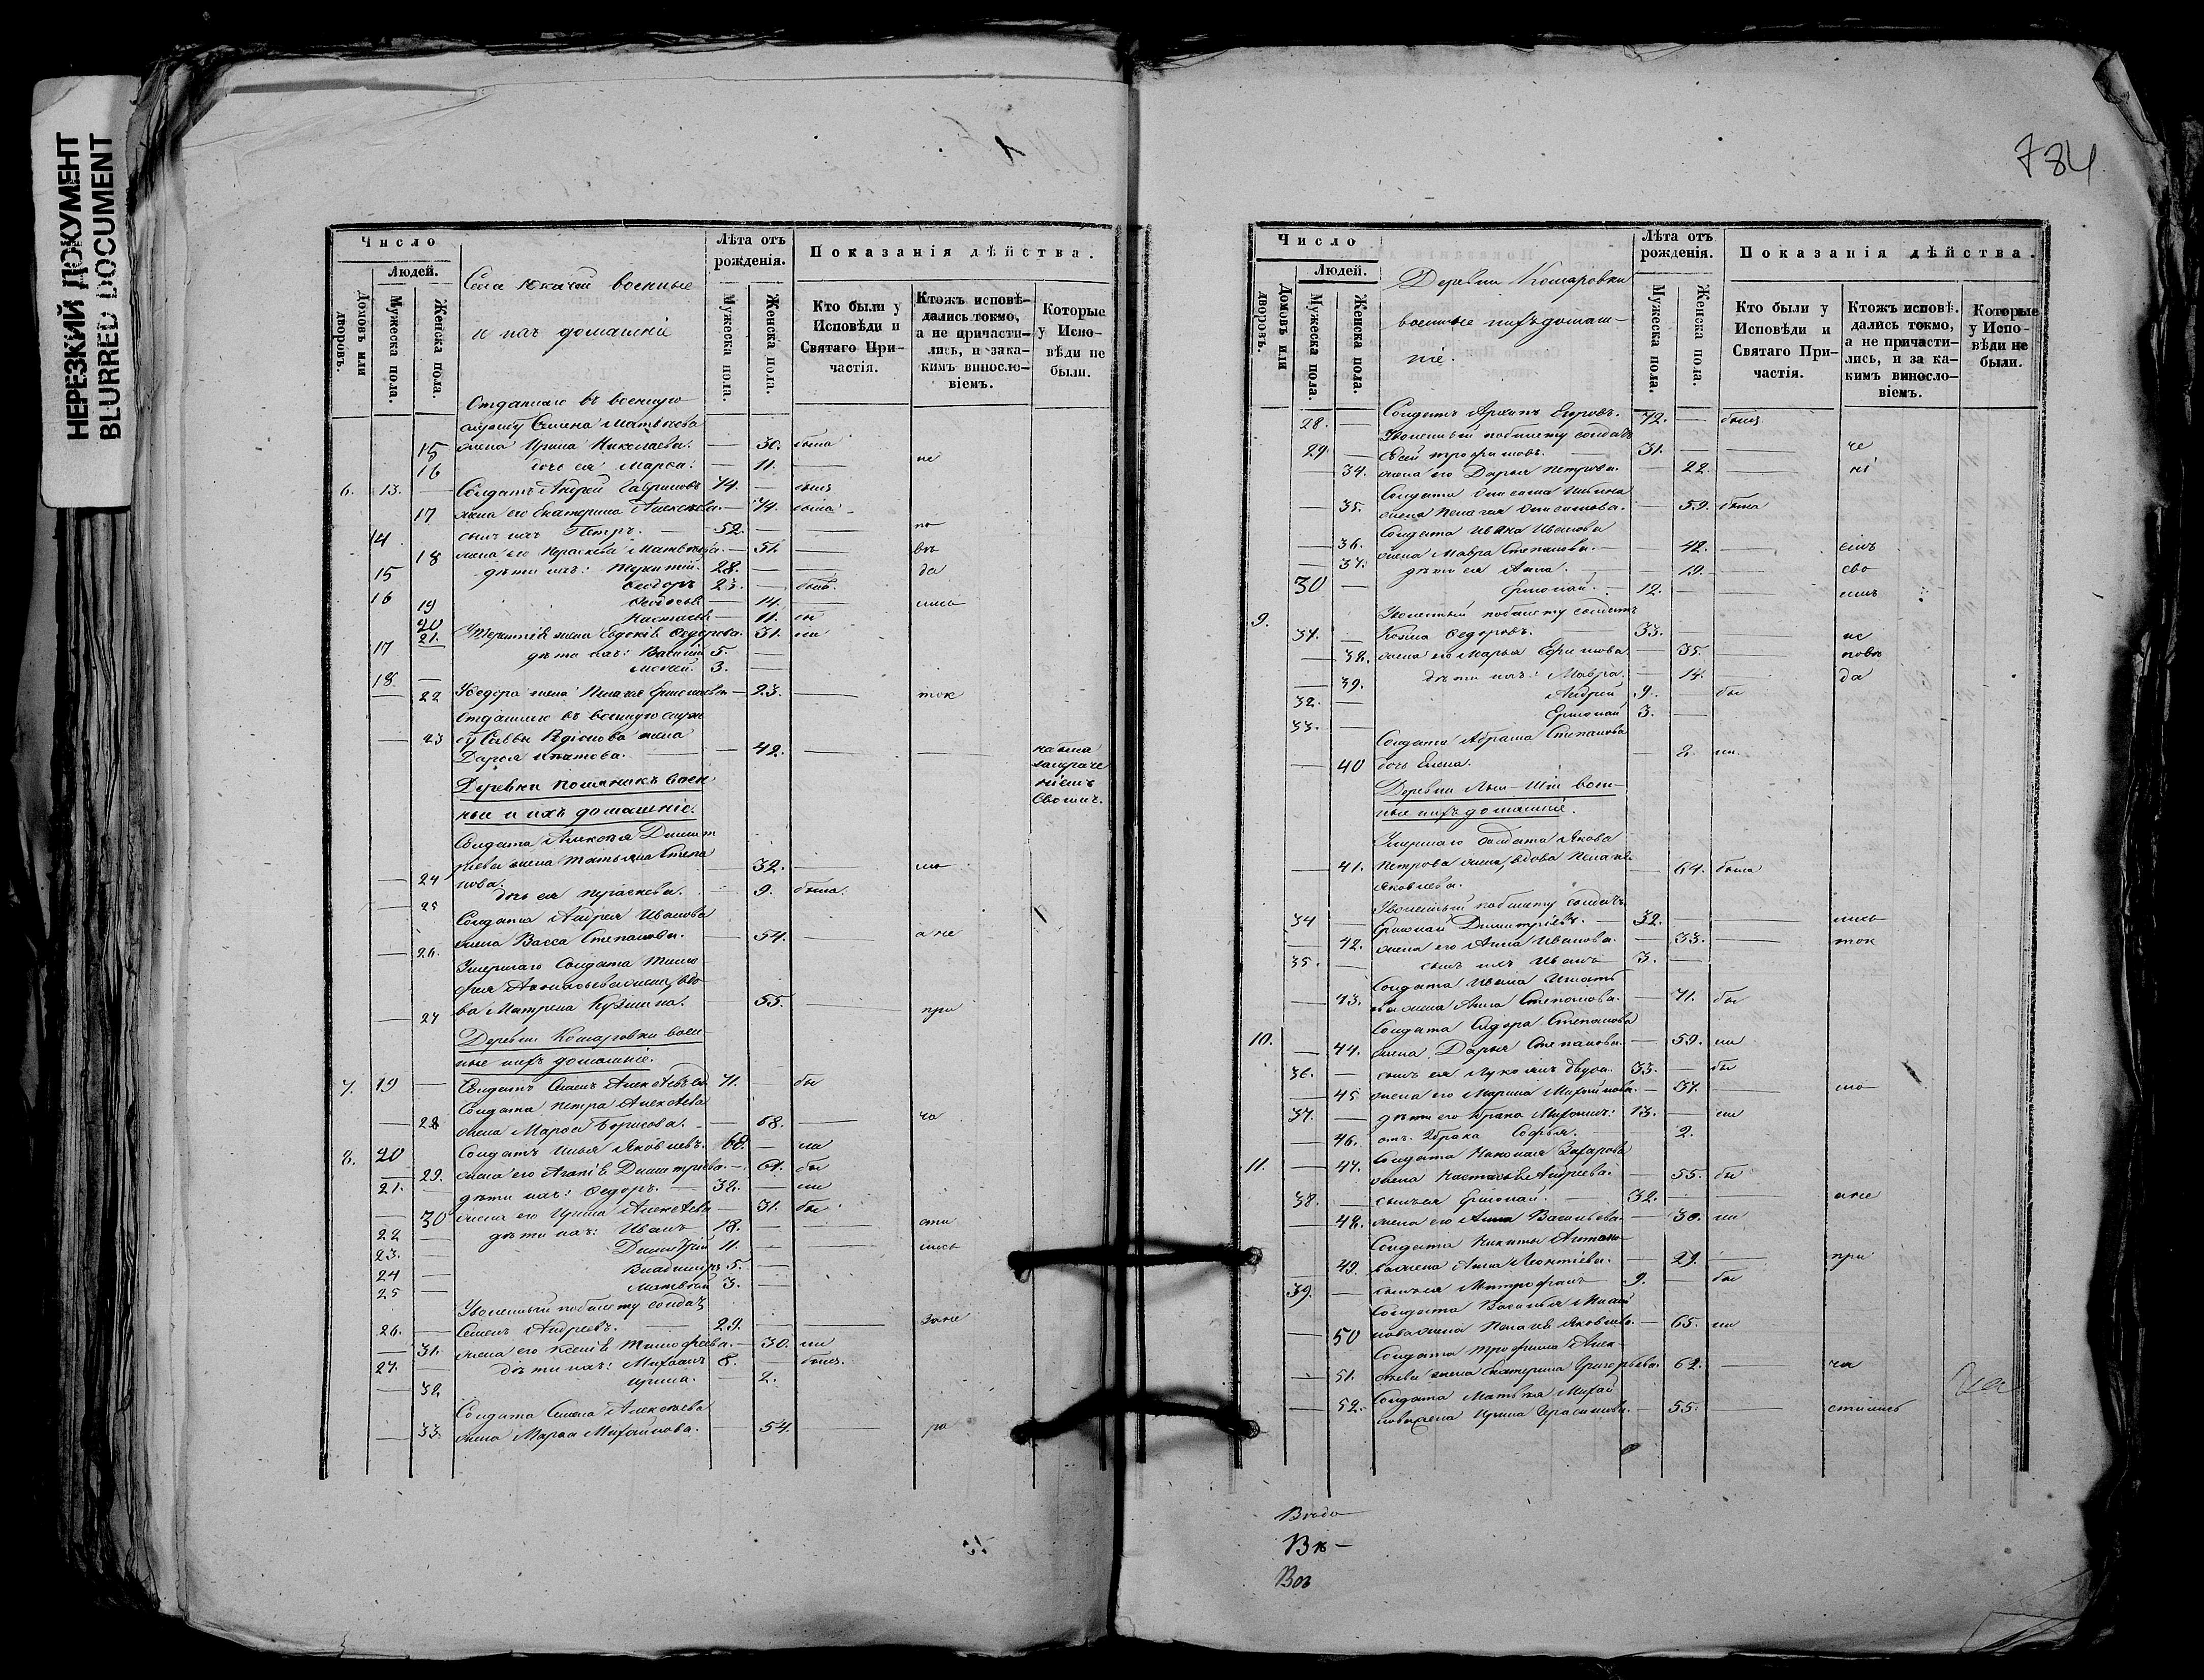 НЕРЕЗКИЙ ДОКУМЕНТ
BLURRED DOCUMENT
Число
Людей.
Домовъ или дворовъ.
Мужеска пола.
Женска пола.
Села Юкачи военные
и ихъ домашніе
Лѣта отъ рожденія.
Мужеска пола.
Женска пола.
Показанія дѣйства.
Кто были у Исповѣди и Святаго Причастія.
Ктожъ исповѣдались токмо, а не причастились, и за какимъ винословіемъ.
Которые у Исповѣди не были.
Отданнаго въ военную
службу Семена Матвѣева
15 жена Ирина Николаева. — 30. была
16 дочь ея Марѳа. — 11. — не
6. 13. — Солдатъ Андрей Гавриловъ 74. — былъ
17 жена его Екатерина Алексѣева. — 74. была
14 сынъ ихъ Петръ. — 52. — по
18 жена его Параскева Матвѣева. — 51. — вѣ
15 дѣти ихъ: Терентій. 28. — да
16 Ѳеодоръ 23. — былъ.
19 Ѳеодосья — 14. — лись
20 Настасья — 11. бы
21. У Терентія жена Евдокія Ѳедорова. 31. ли
17 дѣти ихъ: Василій 5. —
18. — Моисей. 3. —
— 22 У Ѳедора жена Пелагея Ермолаева — 23. — ток
Отданнаго въ военную служ
— 23 бу Саввы Родіонова жена
Дарья Ипатова. — 42. — — небыла
запраче
ніемъ
своимъ.
Деревни Полянокъ воен
ные и ихъ домашніе.
Солдата Алексѣя Димит
ріева жена Татьяна Степа
— 24 нова. 32. — мо
— 25 дочь ея Параскева. 9. была.
Солдата Андрея Иванова
— 26. жена Васса Степанова. — 54. — а не
Умершаго Солдата Тимо
ѳея Аѳанасьева жена, вдо
— 27 ва Матрена Кузмина. 55. — при
Деревни Комаровки воен
ные и ихъ домашніе.
7. 19 — Солдатъ Семенъ Алексѣевъ 71. — бы
Солдата Петра Алексѣева
— 28 жена Марѳа Борисова. — 68. — ча
8. 20 Солдатъ Илья Яковлевъ. 68. — ли
— 29. жена его Агапія Димитріева. — 61. бы
21. — дѣти ихъ: Ѳедоръ. — 32. — ли
— 30 жена его Ирина Алексѣева — 31. бы
22 — дѣти ихъ: Иванъ 18. — сти
23. — Димитрій 11. — лись
24 — Владимиръ 5. —
25 — Матвѣй 3. —
Уволенный побилету солдатъ
26. — Семенъ Андреевъ. — 29. — — зане
— 31. жена его Ксенія Тимофеева. — 30. ли
27. — дѣти ихъ: Михаилъ 8. — былъ.
— 32 Ирина. — 2.
Солдата Семена Алексѣева
— 33. жена Марѳа Михайлова. — 54. — ра
784
Число
Людей.
Домовъ или дворовъ.
Мужеска пола.
Женска пола.
Деревни Комаровки
военные и ихъ домаш-
ніе.
Лѣта отъ рожденія.
Мужеска пола.
Женска пола.
Показанія дѣйства.
Кто были у Исповѣди и Святаго Причастія.
Ктожъ исповѣдались токмо, а не причастились, и за какимъ винословіемъ.
Которые у Исповѣди не были.
28. — Солдатъ Архипъ Егоровъ. 72. — былъ
Уволенный побилету солдатъ
29. — Трофимовъ. 31. — че
— 34. жена его Дарья Петрова. — 22. — ні
Солдата
— 35. жена Пелагея — 59. была
Солдата Ивана Иванова
— 36. жена Мавра Степанова. — 42. — емъ
— 37. дѣти ея Анна. — 19. — сво
30 — Ермолай. — 12. — имъ
9. Уволенный побилету солдатъ
31. — Козма Ѳедоровъ. 33. — не
— 38. жена его Марья Ефимова — 35. — повѣ
— 39. дѣти ихъ: Мавра. 14. — да
32. — Андрей 9. бы
33. — Ермолай 3. —
Солдата Абрама Степанова
— 40 дочь Елена. — 8. ли.
Деревни воен-
ные и ихъ домашніе.
Умершаго солдата Якова
— 41. Петрова жена, вдова Пелагея
Яковлева. — 64. была
Уволенный побилету солдатъ
34 — Ермолай Димитріевъ. — 32. — лись
— 42. жена его Анна Иванова. — 33. — ток
35. — сынъ ихъ Иванъ 3. —
Солдата Ивана Игнать
— 43. ева жена Анна Степанова. — 71. бы
10. Солдата Сидора Степанова
— 44. жена Дарья Степанова. — 59. ли
36. — сынъ ея Лукоянъ 33. — бы
— 45 жена его Марина Михайлова. — 37. — мо
37. — дѣти его 1брака Михаилъ: 13. — ли
— 46. отъ 2брака Софья. — 2.
11. Солдата Николая Захарова
— 47. жена Настасья Андреева. — 55. бы
38. — сынъ ея Ермолай. — 32. — ане
— 48. жена его Анна Васильева — 30. ли
Солдата Никиты Антоно-
— 49. ва жена Анна Леонтіева. — 29. — при
39. — сынъ ея Митрофанъ 9. — бы
Солдата Василья Михай
— 50 лова жена Пелагея Яковлева — 65. ли
Солдата Трофима Алек-
— 51. сѣева жена Екатерина Григорьева. 62. — ча
Солдата Матвѣя Михай
— 52. лова жена Ирина Герасимова. — 55. — стились